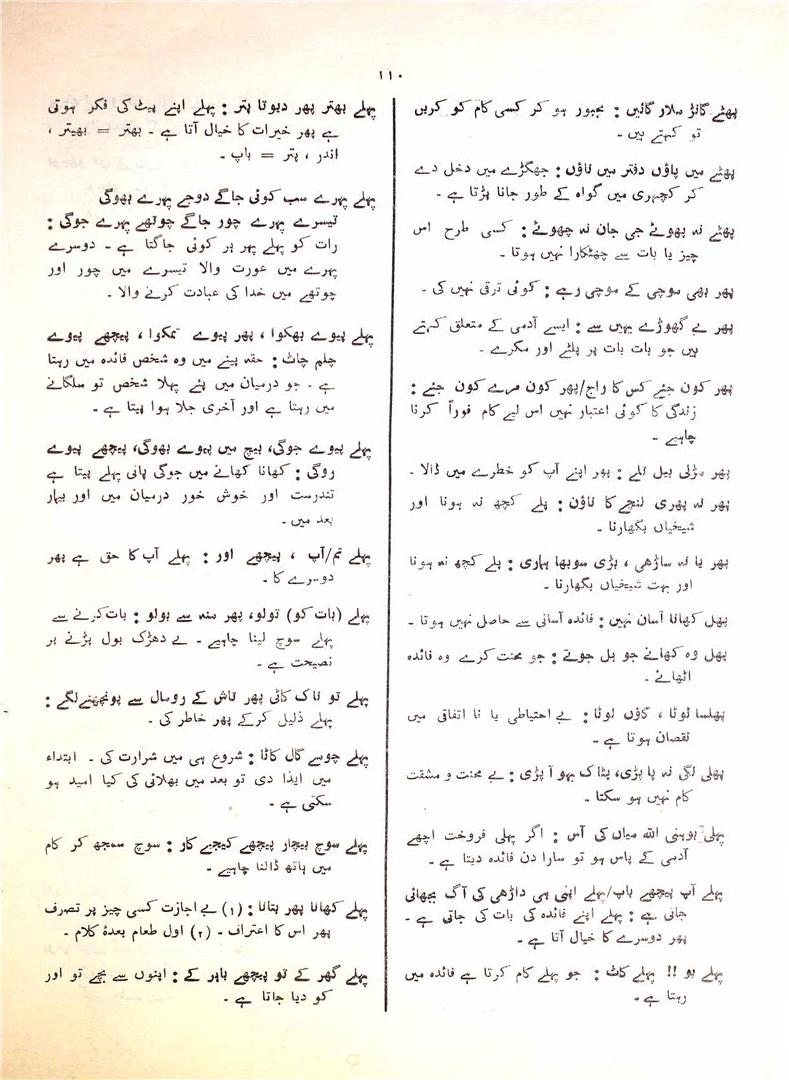 ۱۱۰
پھٹے گانڑ سلار گائیں : مجبور ہو کر کسی کام کو کریں
تو کہتے ہیں ۔
پھٹے میں پاؤں دفتر میں ناؤں : جھگڑے میں دخل دے
کر کچہری میں گواہ کے طور جانا پڑتا ہے ۔
پھٹے نہ پھوٹے جی جان نہ چھوٹے : کسی طرح اس
چیز یا بات سے چھٹکارا نہیں ہوتا ۔
پھر بھی موچی کے موچی رہے : کوئی ترق نہیں کی ۔
پھر بے گھوڑے یہیں سے : ایسے آدمی کے متعلق کہتے
ہیں جو بات بات پر پلٹے اور مکرے ۔
پھر کون جئے کس کا راج/پھر کون مرے کون جئے :
زندگی کا کوئی اعتبار نہیں اس لیے کام فوراً کرنا
چاہیے ۔
پھر مڑلی بیل تلے : پھر اپنے آپ کو خطرے میں ڈالا ۔
پھر نہ پھری لنچے کا ناؤں : پلے کچھ نہ ہونا اور
شیخیاں بگھارنا ۔
پھر یا نہ ساڑھی ، بڑی سوبھا ہماری : پلے کچھ نہ ہونا
اور بہت شیخیاں بگھارنا ۔
پھل کھانا آسان نہیں : فائدہ آسانی سے حاصل نہیں ہوتا ۔
پھل وہ کھائے جو ہل جوتے : جو محنت کرے وہ فائدہ
اٹھائے ۔
پھلسا ٹوٹا ، گاؤں لوٹا : بے احتیاطی یا نا اتفاق میں
نقصان ہوتا ہے ۔
پھلی لگی نہ پاپڑی، پٹاک بہو آ پڑی : بے محنت و مشقت
کام نہیں ہو سکتا ۔
پہلی بوہنی اللہ میاں کی آس : اگر پہلی فروخت اچھے
آدمی کے پاس ہو تو سارا دن فائدہ دیتا ہے ۔
پہلے آپ پیچھے باپ/پہلے اپنی ہی داڑھی کی آگ بجھائی
جاتی ہے : پہلے اپنے فائدہ کی بات کی جاتی ہے ۔
پھر دوسرے کا خیال آتا ہے ۔
پہلے بو !! پہلے کاٹ : جو پہلے کام کرتا ہے فائدہ میں
رہتا ہے ۔
پہلے بھتر پھر دیوتا پتر : پہلے اپنے پیٹ کی فکر ہوتی
ہے پھر خیرات کا خیال آتا ہے ۔ بھتر = بھیتر ،
اندر ، پتر = باپ ۔
پہلے پہرے سب کوئی جاگے دوجے پہرے بھوگی
تیسرے پہرے چور جاگے چوتھے پہرے جوگی :
رات کو پہلے پہر ہر کوئی جاگتا ہے ۔ دوسرے
پہرے میں عورت والا تیسرے میں چور اور
چوتھے میں خدا کی عبادت کرنے والا ۔
پہلے پیوے بھکوا ، پھر پیوے تمکوا ، پیچھے پیوے
چلم چاٹ : حقہ پینے میں وہ شخص فائدہ میں رہتا
ہے ۔ جو درمیان میں پئے پہلا شخص تو سلگانے
میں رہتا ہے اور آخری جلا ہوا پیتا ہے ۔
پہلے پیوے جوگی، بیچ میں پیوے بھوگی، پیچھے پیوے
روگی : کھانا کھانے میں جوگی پانی پہلے پیتا ہے
تندرست اور خوش خور درمیان میں اور بیمار
بعد میں ۔
پہلے تم/آپ ، پیچھے اور : پہلے آپ کا حق ہے پھر
دوسرے کا ۔
پہلے (بات کو) تولو، پھر منہ سے بولو : بات کرنے سے
پہلے سوچ لینا چاہیے ۔ بے دھڑک بول پڑنے پر
نصیحت ہے ۔
پہلے تو ناک کاٹی پھر تاش کے رومال سے پونچھنے لگے :
پہلے ذلیل کرکے پھر خاطر کی ۔
پہلے چوسے گال کاٹا : شروع ہی میں شرارت کی ۔ ابتداء
میں ایذا دی تو بعد میں بھلائی کی کیا امید ہو
سکتی ہے ۔
پہلے سوچ بچار پیچھے کیجیے کار : سوچ سمجھ کر کام
میں ہاتھ ڈالنا چاہیے ۔
پہلے کھانا پھر بتانا : (۱) بے اجازت کسی چیز پر تصرف
پھر اس کا اعتراف ۔ (۲) اول طعام بعدہٗ کلام ۔
پہلے گھر کے تو پیچھے باہر کے : اپنوں سے بچے تو اور
کو دیا جاتا ہے ۔